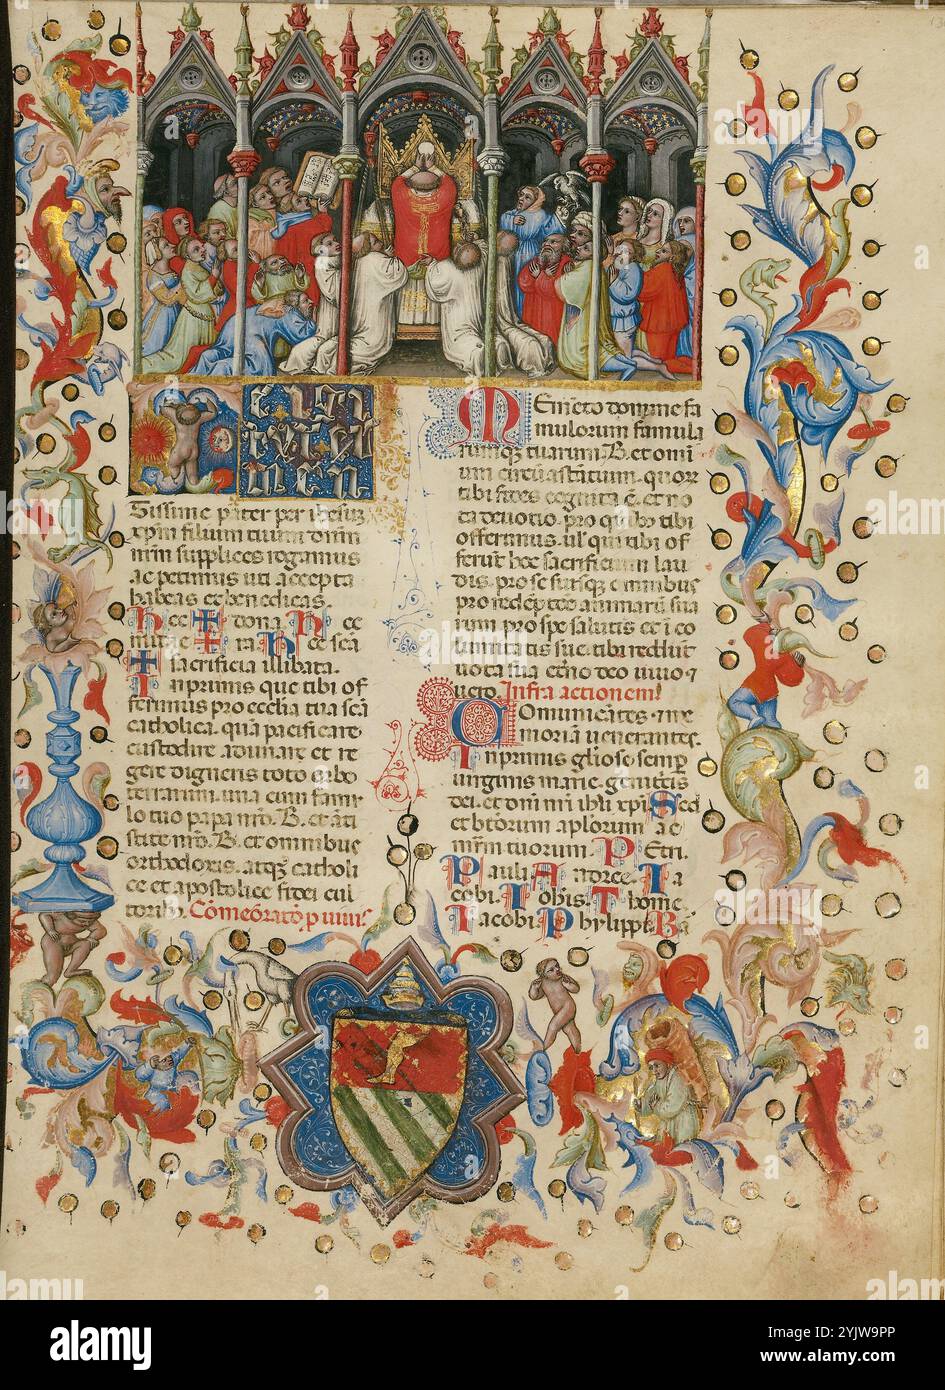 TE IGI
TVR CLE
MEN
tissime pater per ihesum
xpm filium tuum domi
num supplices rogamus
ac petimus uti accepta
habeas et benedicas
hec ✝ dona. hec
mune ✝ ra. hec sca
✝ sacrificia illibata.
Inprimis que tibi of
ferimus pro ecclia tua sca
catholica. quam pacificare
custodire adunare et re
gere digneris toto orbe
terrarum. una cum famu
lo tuo papa nro. B. et anti
stite nro. B. et omnibus
orthodoxis. atq3 catholi
ce et apostolice fidei cul
toribus. Comeoratio p uiuis
Memeto domine fa
mulorum famula
rumq3 tuarum. B. et omi
um circu astatium. quor
tibi fides cognita e. et no
ta deuotio. pro quibus tibi
offerimus. uel qui tibi of
ferut hoc sacrificium lau
dis. pro se suisq3 omnibus
pro redeptioe animaru sua
rum pro spe salutis et i co
lumitatis sue. tibi reddut
uota sua eterno deo uiuo 7
uero. Infra actionem
Comunicates. me
moriam uenerantes.
Inprimis gliose semper
uirginis marie. genitricis
dei. et domi nri ihu xpi. Sed
et btorum aplorum ac
mrm tuorum. Petri.
Pauli. Andree. Ia
cobi. Iohis. Thome.
Iacobi. Phylippi. Ba
alamy
Image ID: 2YJW9PP
www.alamy.com